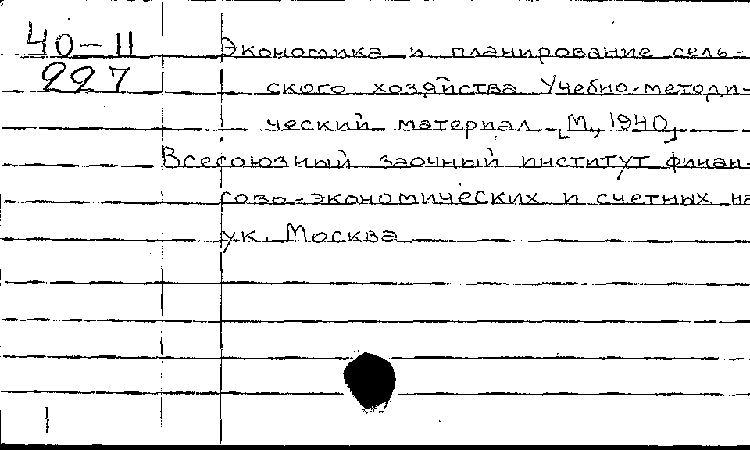 40-11
227
Экономика и планирование сель-
ского хозяйства Учебно-методи-
ческий материал [М., 1940]
Всесоюзный заочный институт финан-
сово-экономических и счетных на
ук. Москва